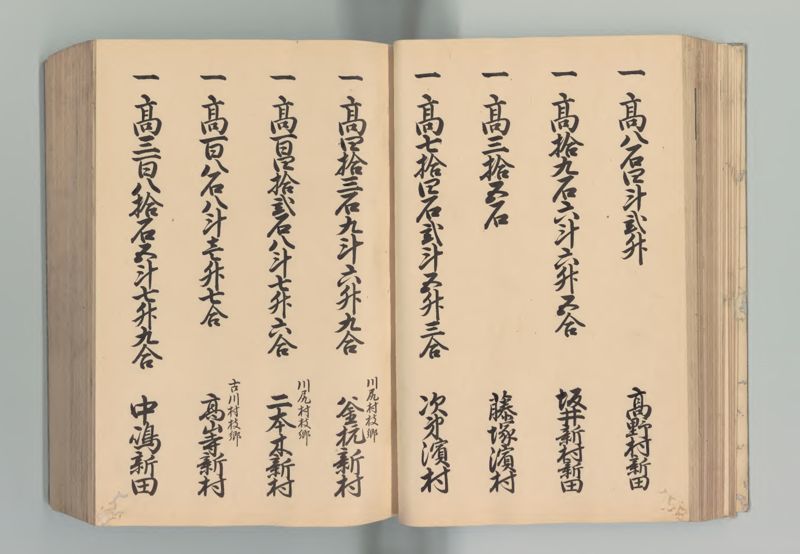 一 高八石四斗弐升 高野村新田
一 高拾九石六斗六升五合 坂井新村新田
一 高三拾五石 藤塚濱村
一 高七拾四石弐斗五升三合 次第濱村
一 高四拾三石九斗六升九合 川尻村枝郷 釜杭新村
一 高百四拾弐石八斗七升六合 川尻村枝郷 二本木新村
一 高百八石八斗壱升七合 古川村枝郷 高山寺新村
一 高三百八拾石五斗七升九合 中嶋新田